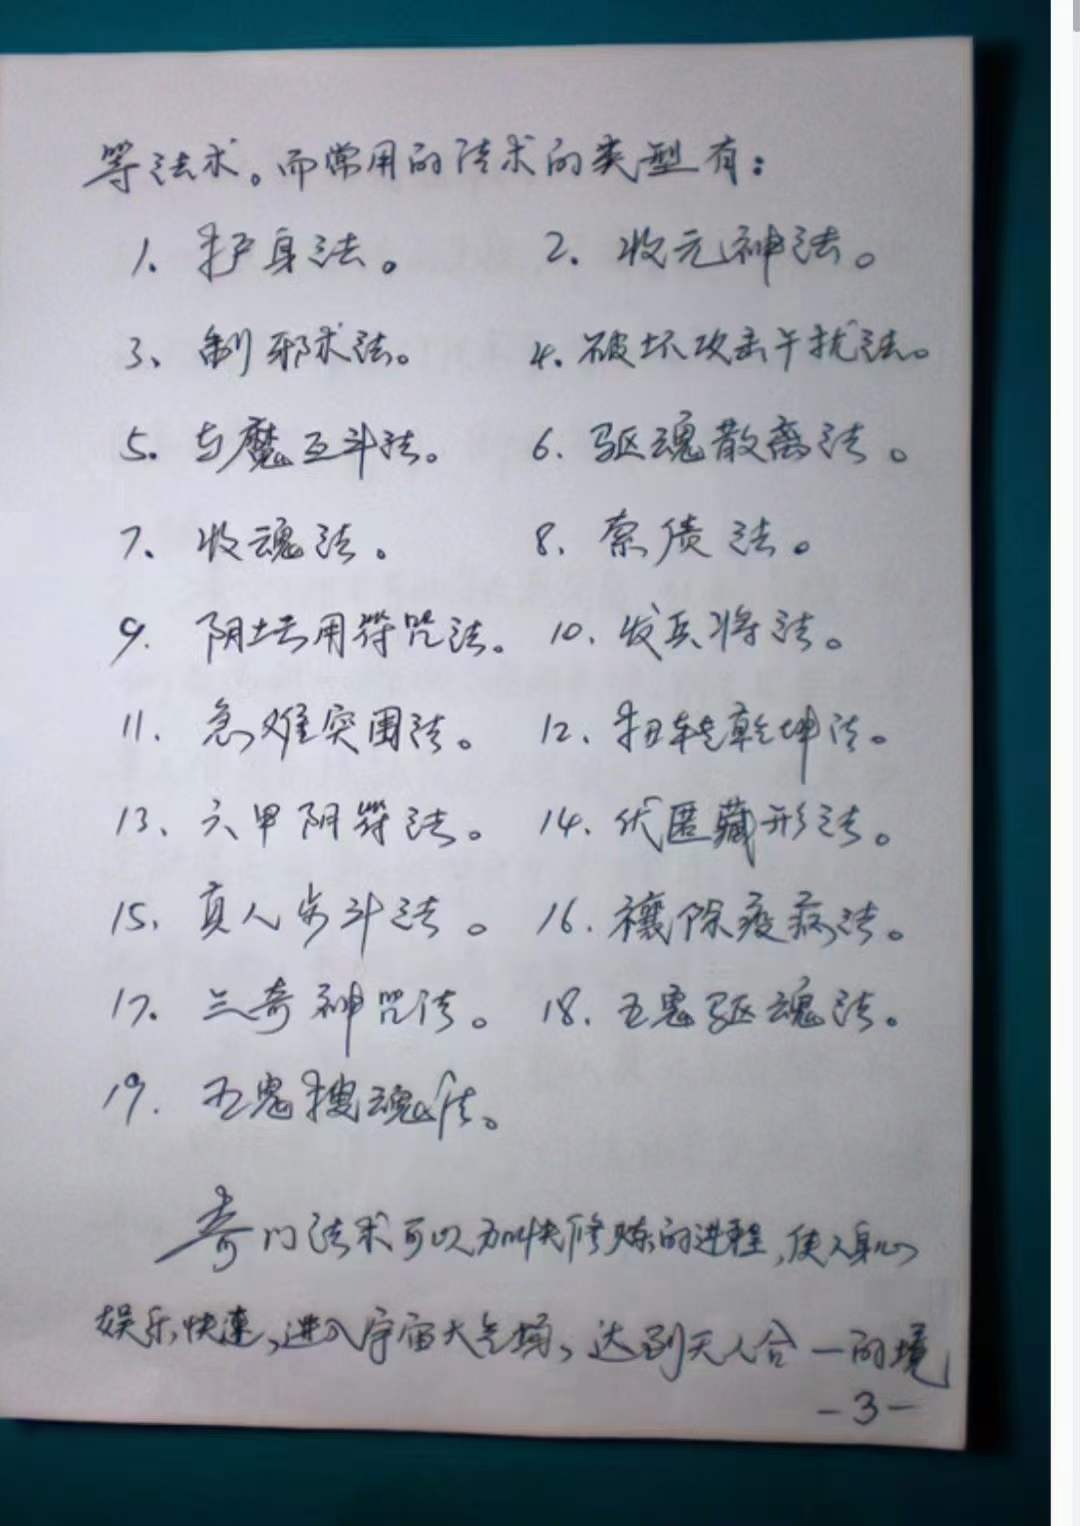 等法术。而常用的法术的类型有：
1. 护身法。 2. 收元神法。
3、制邪术法。 4. 破坏攻击干扰法。
5. 与魔互斗法。 6. 驱魂散离法。
7. 收魂法。 8. 索债法。
9. 阴坛用符咒法。 10. 发兵将法。
11. 急难突围法。 12、扭转乾坤法。
13、六甲阴符法。 14. 伏匿藏形法。
15. 真人步斗法。 16. 禳除疫病法。
17. 三奇神咒法。 18. 五鬼驱魂法。
19. 五鬼搜魂法。
奇门法术可以加快修炼的进程，使人身心
娱乐快速，进入宇宙大气场，达到天人合一的境
-3-